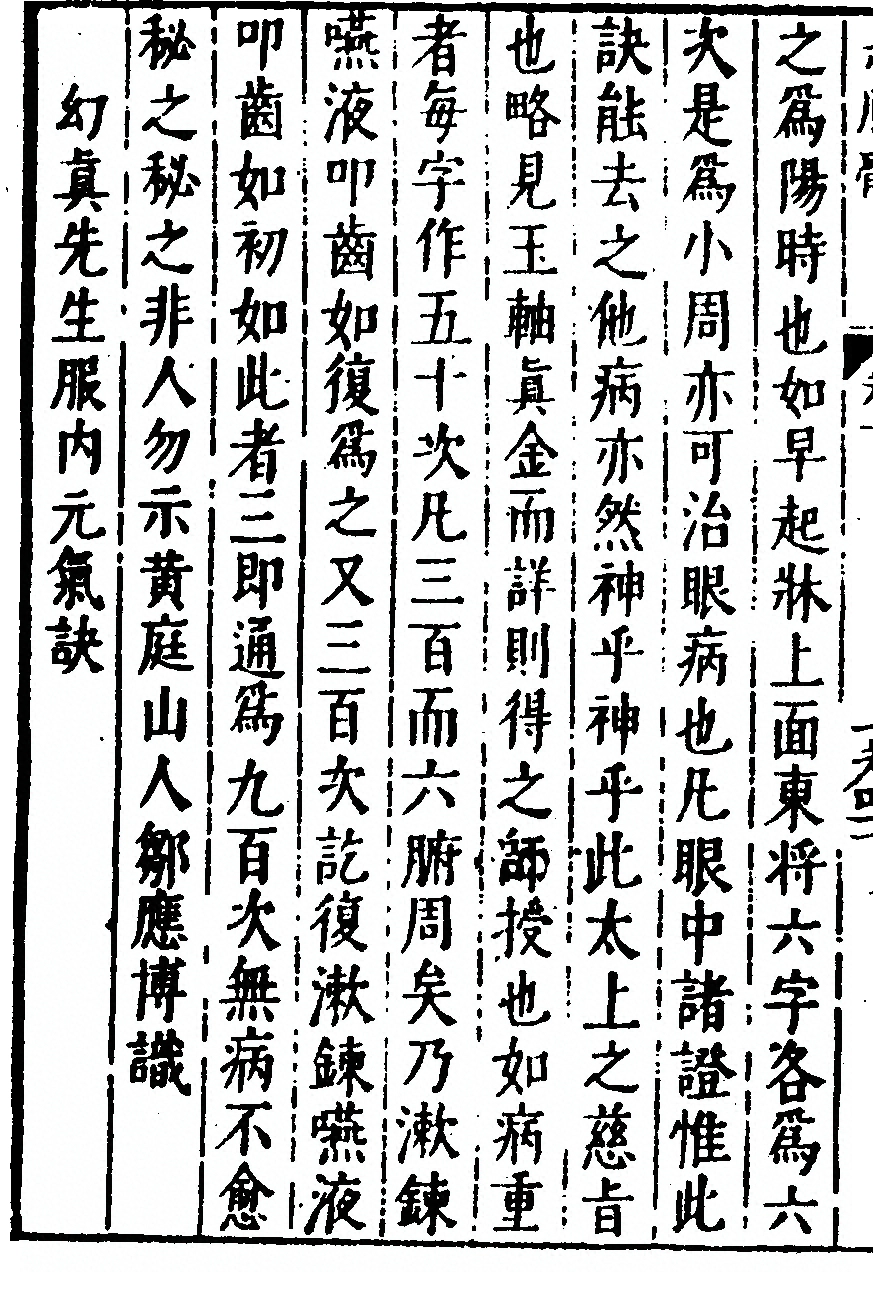 之爲陽時也如早起牀上面東将六字各爲六
次是爲小周亦可治眼病也凡眼中諸證惟此
訣能去之他病亦然神乎神乎此太上之慈旨
也略見玉軸眞金而詳則得之師授也如病重
者每字作五十次凡三百而六腑周矣乃漱鍊
嚥液叩齒如復爲之又三百次訖復漱鍊嚥液
叩齒如初如此者三即通爲九百次無病不愈
秘之秘之非人勿示黄庭山人鄒應博識
幻眞先生服内元氣訣